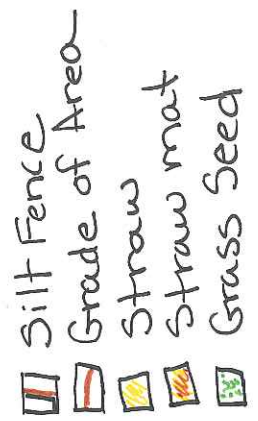 Silt Fence
Grade of Area
Straw
Straw mat
Grass Seed